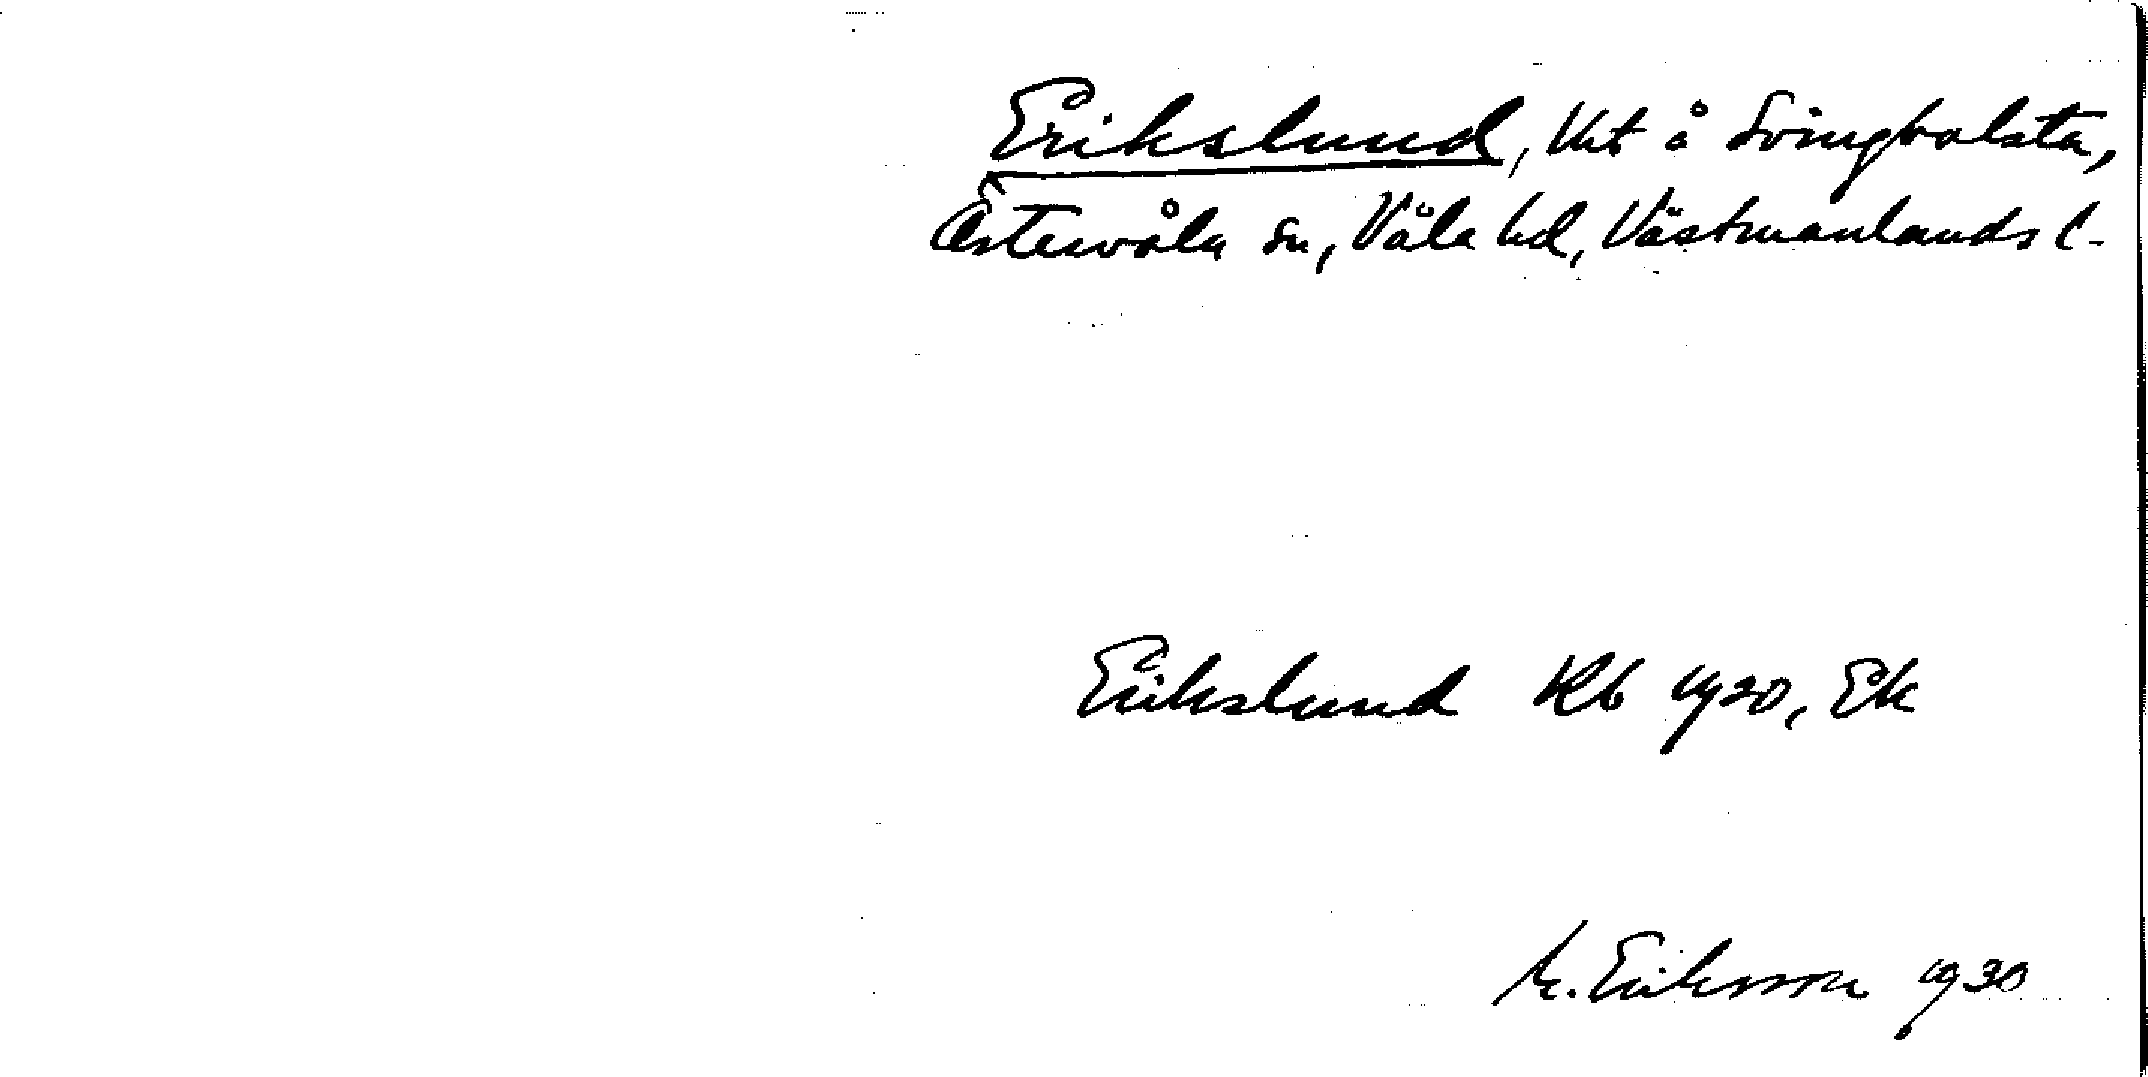 Erikslund, Uct å Svingbolsta,
Östervåla sn, Våla hd, Västmanlands l.
Erikslund Kb 1920, Ek
M. Eriksson 1930